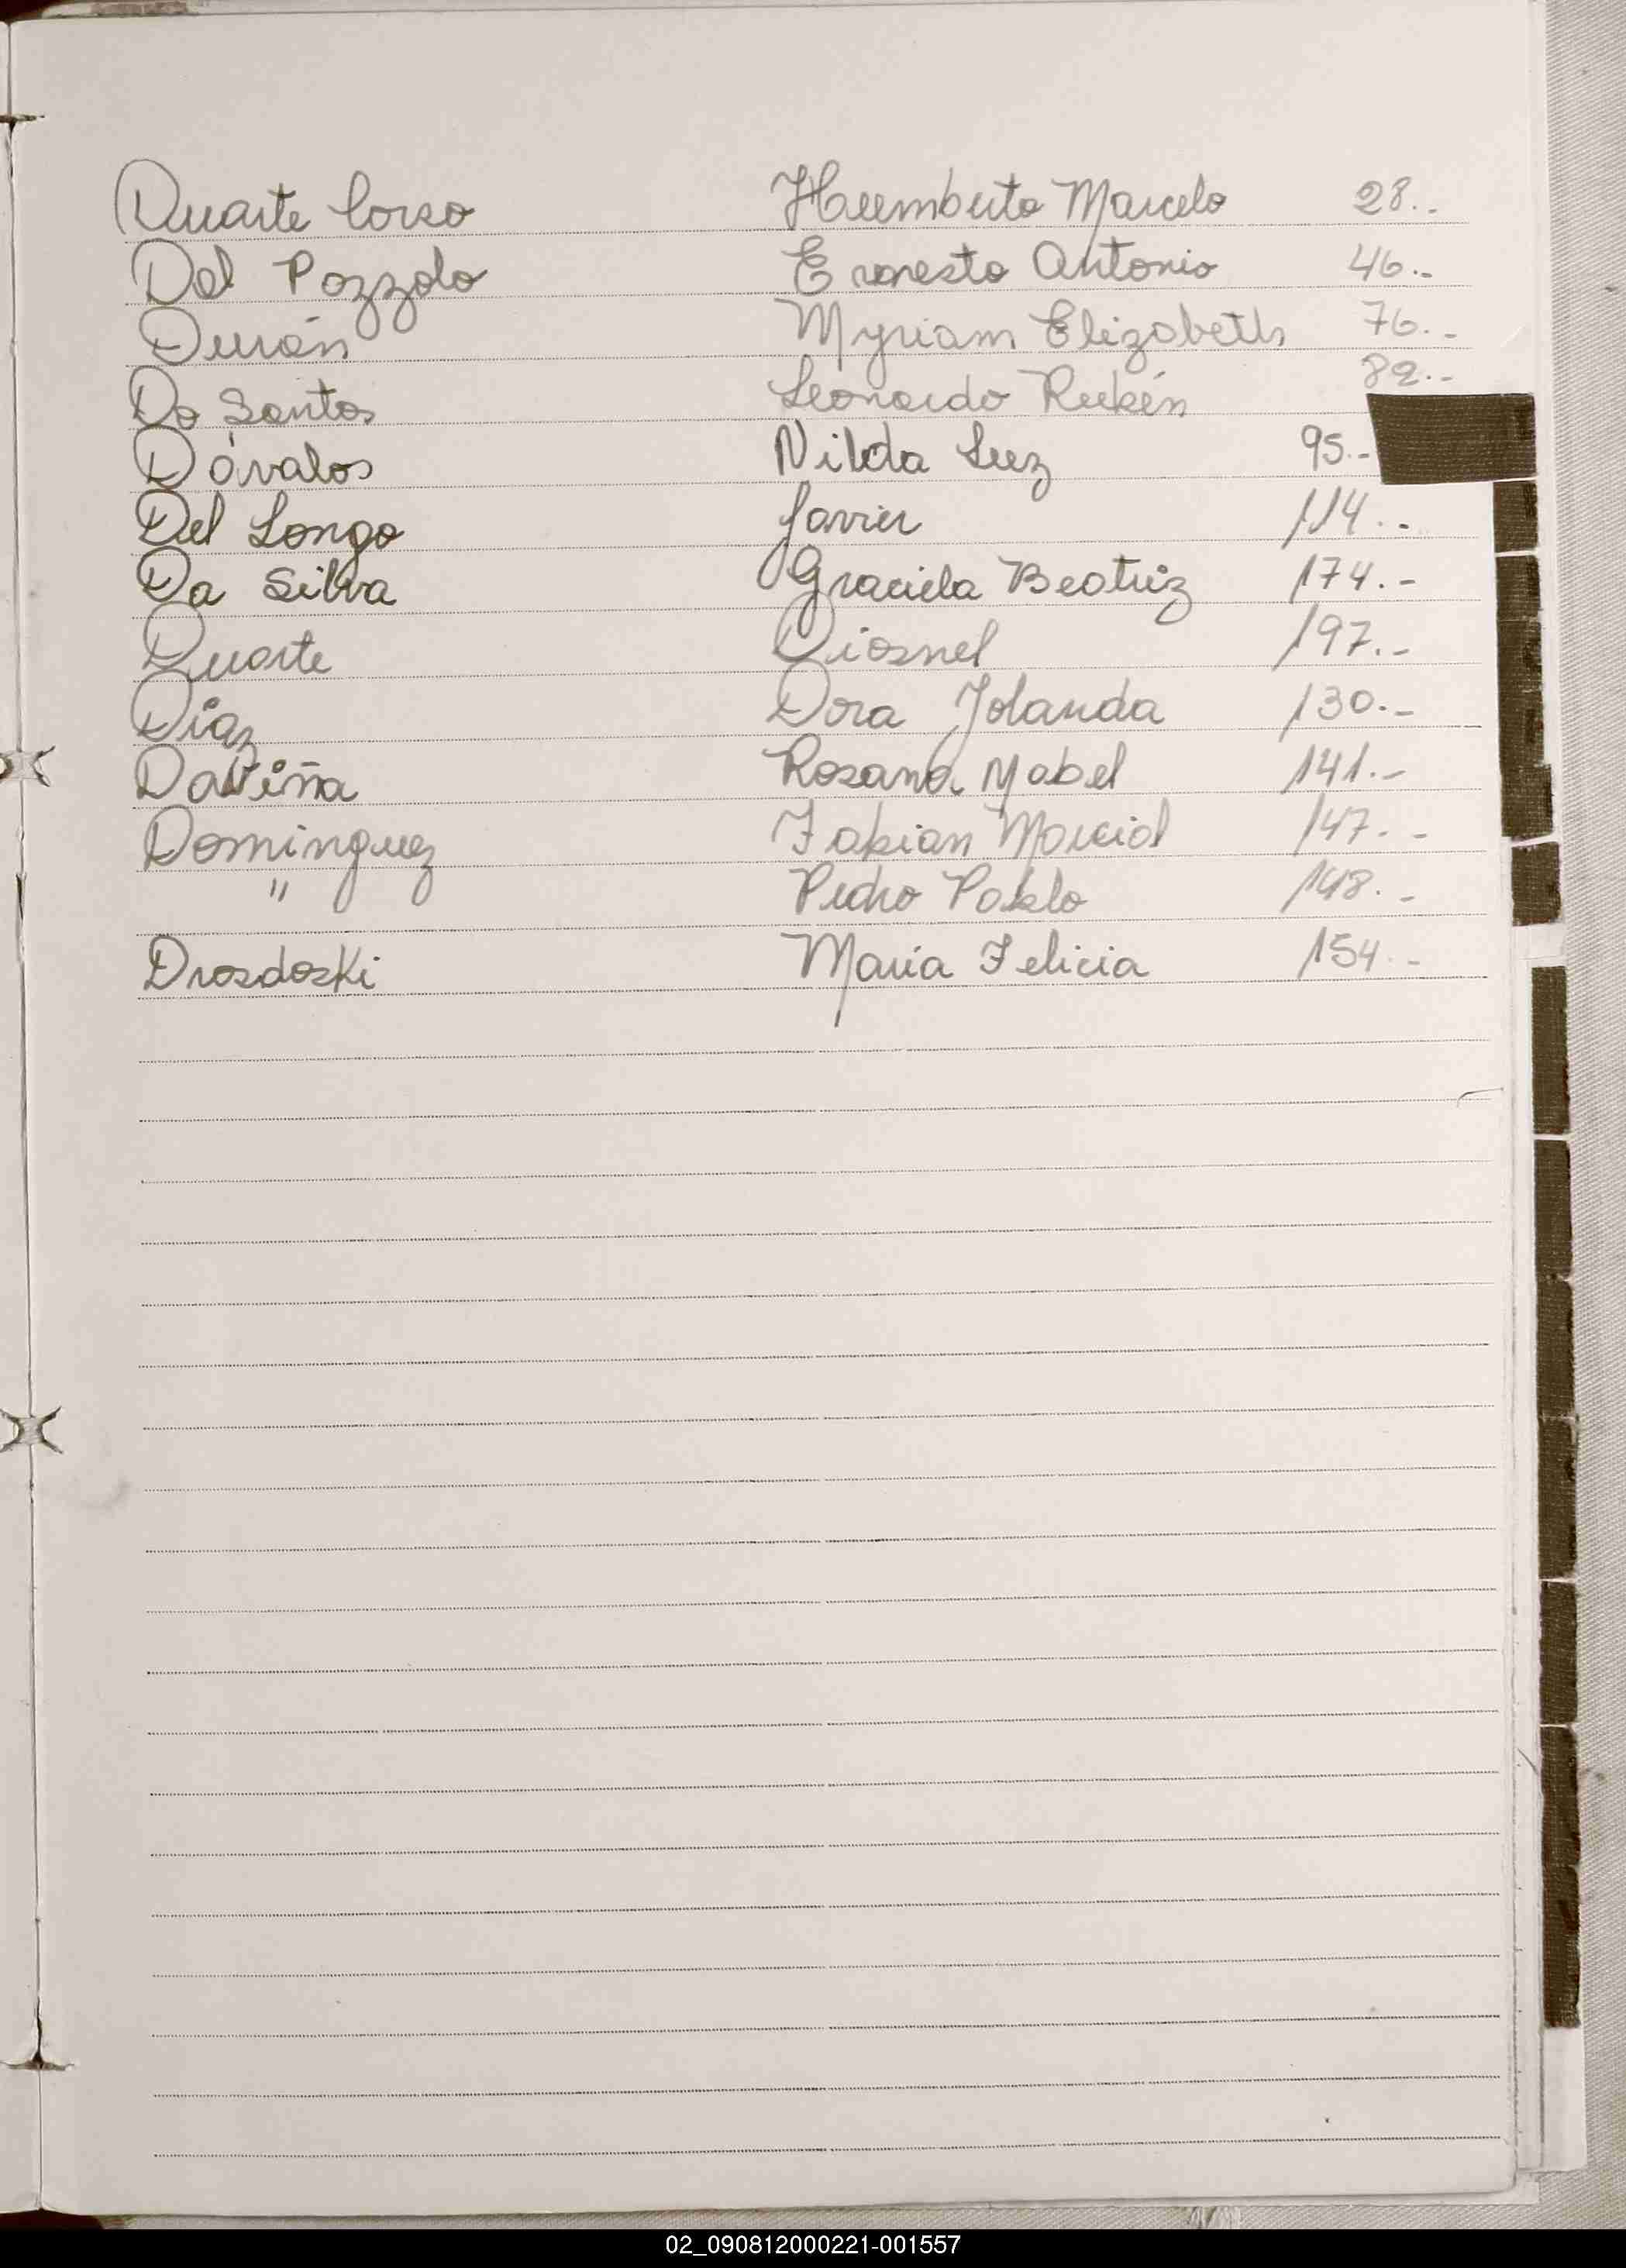 Duarte Corso Humberto Marcelo 28.-
Del Pozzolo Ernesto Antonio 46.-
Durán Myriam Elizabeth 76.-
Do Santos Leonardo Rubén 82.-
Dávalos Nilda Luz 95.-
Del Longo Javier 114.-
Da Silva Graciela Beatriz 174.-
Duarte Diosnel 197.-
Díaz Dora Yolanda 130.-
Daviña Rosana Mabel 141.-
Dominguez Fabian Marcial 147.-
" Pedro Pablo 148.-
Drosdoski Maria Felicia 154.-
02_090812000221-001557